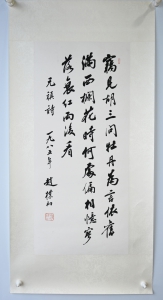 竊見胡三問牡丹為言依舊
滿西欄花時何處偏相憶寥
落衰紅雨後看
元稹詩
一九八五年 趙樸初